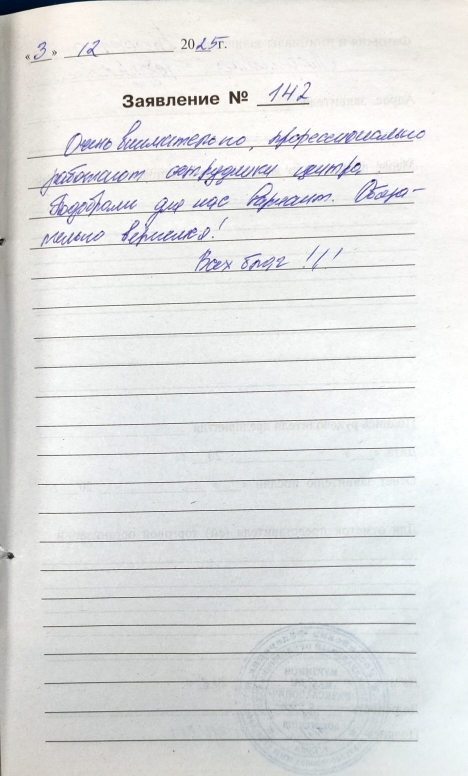 «3» 12 2025г.
Заявление № 142
Очень внимательно, профессионально
работают сотрудники центра.
Подобрали для нас вариант. Обяза-
тельно вернемся!
Всех благ !!!